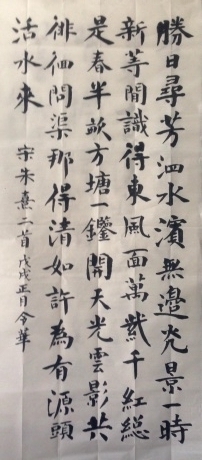 勝日尋芳泗水濱無邊光景一時
新等閒識得東風面萬紫千紅總
是春半畝方塘一鑑開天光雲影共
徘徊問渠那得清如許為有源頭
活水來
宋朱熹二首戊戌正月令華